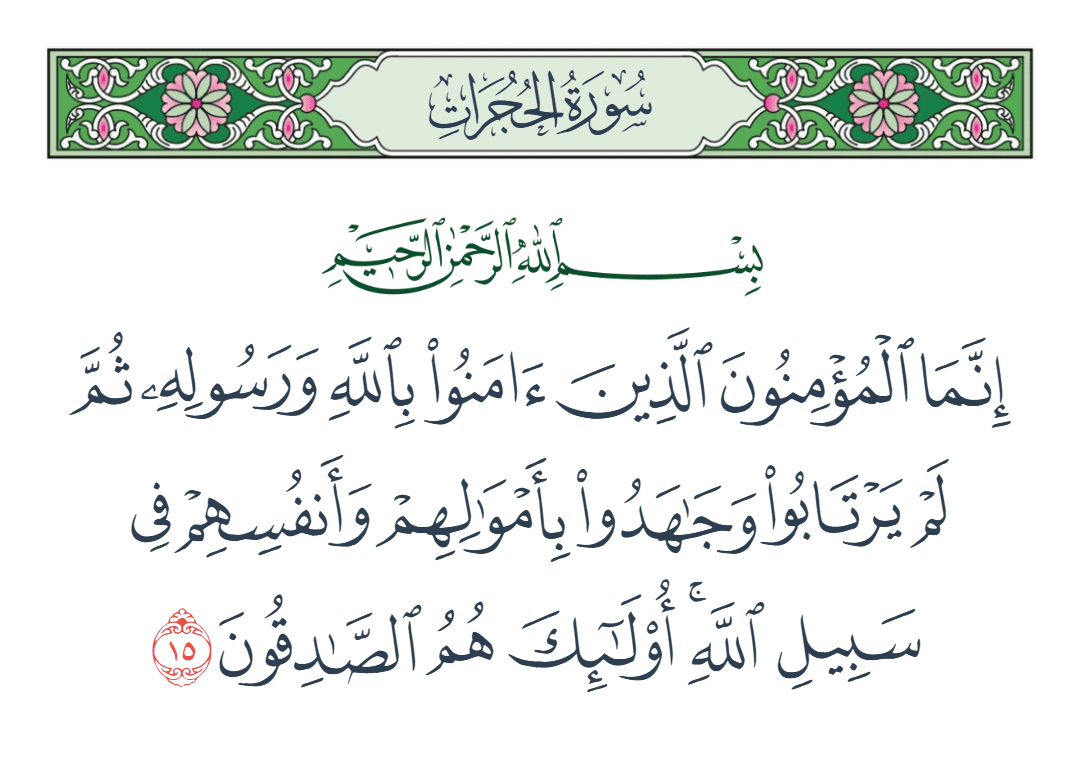 سُورَةُ الحُجُرَاتِ
بِسْمِ ٱللَّهِ ٱلرَّحْمَٰنِ ٱلرَّحِيمِ
إِنَّمَا ٱلْمُؤْمِنُونَ ٱلَّذِينَ ءَامَنُوا۟ بِٱللَّهِ وَرَسُولِهِۦ ثُمَّ
لَمْ يَرْتَابُوا۟ وَجَٰهَدُوا۟ بِأَمْوَٰلِهِمْ وَأَنفُسِهِمْ فِى
سَبِيلِ ٱللَّهِ ۚ أُو۟لَٰٓئِكَ هُمُ ٱلصَّٰدِقُونَ ١٥